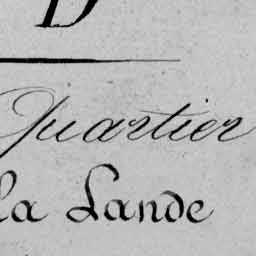 D
Quartier
la Lande